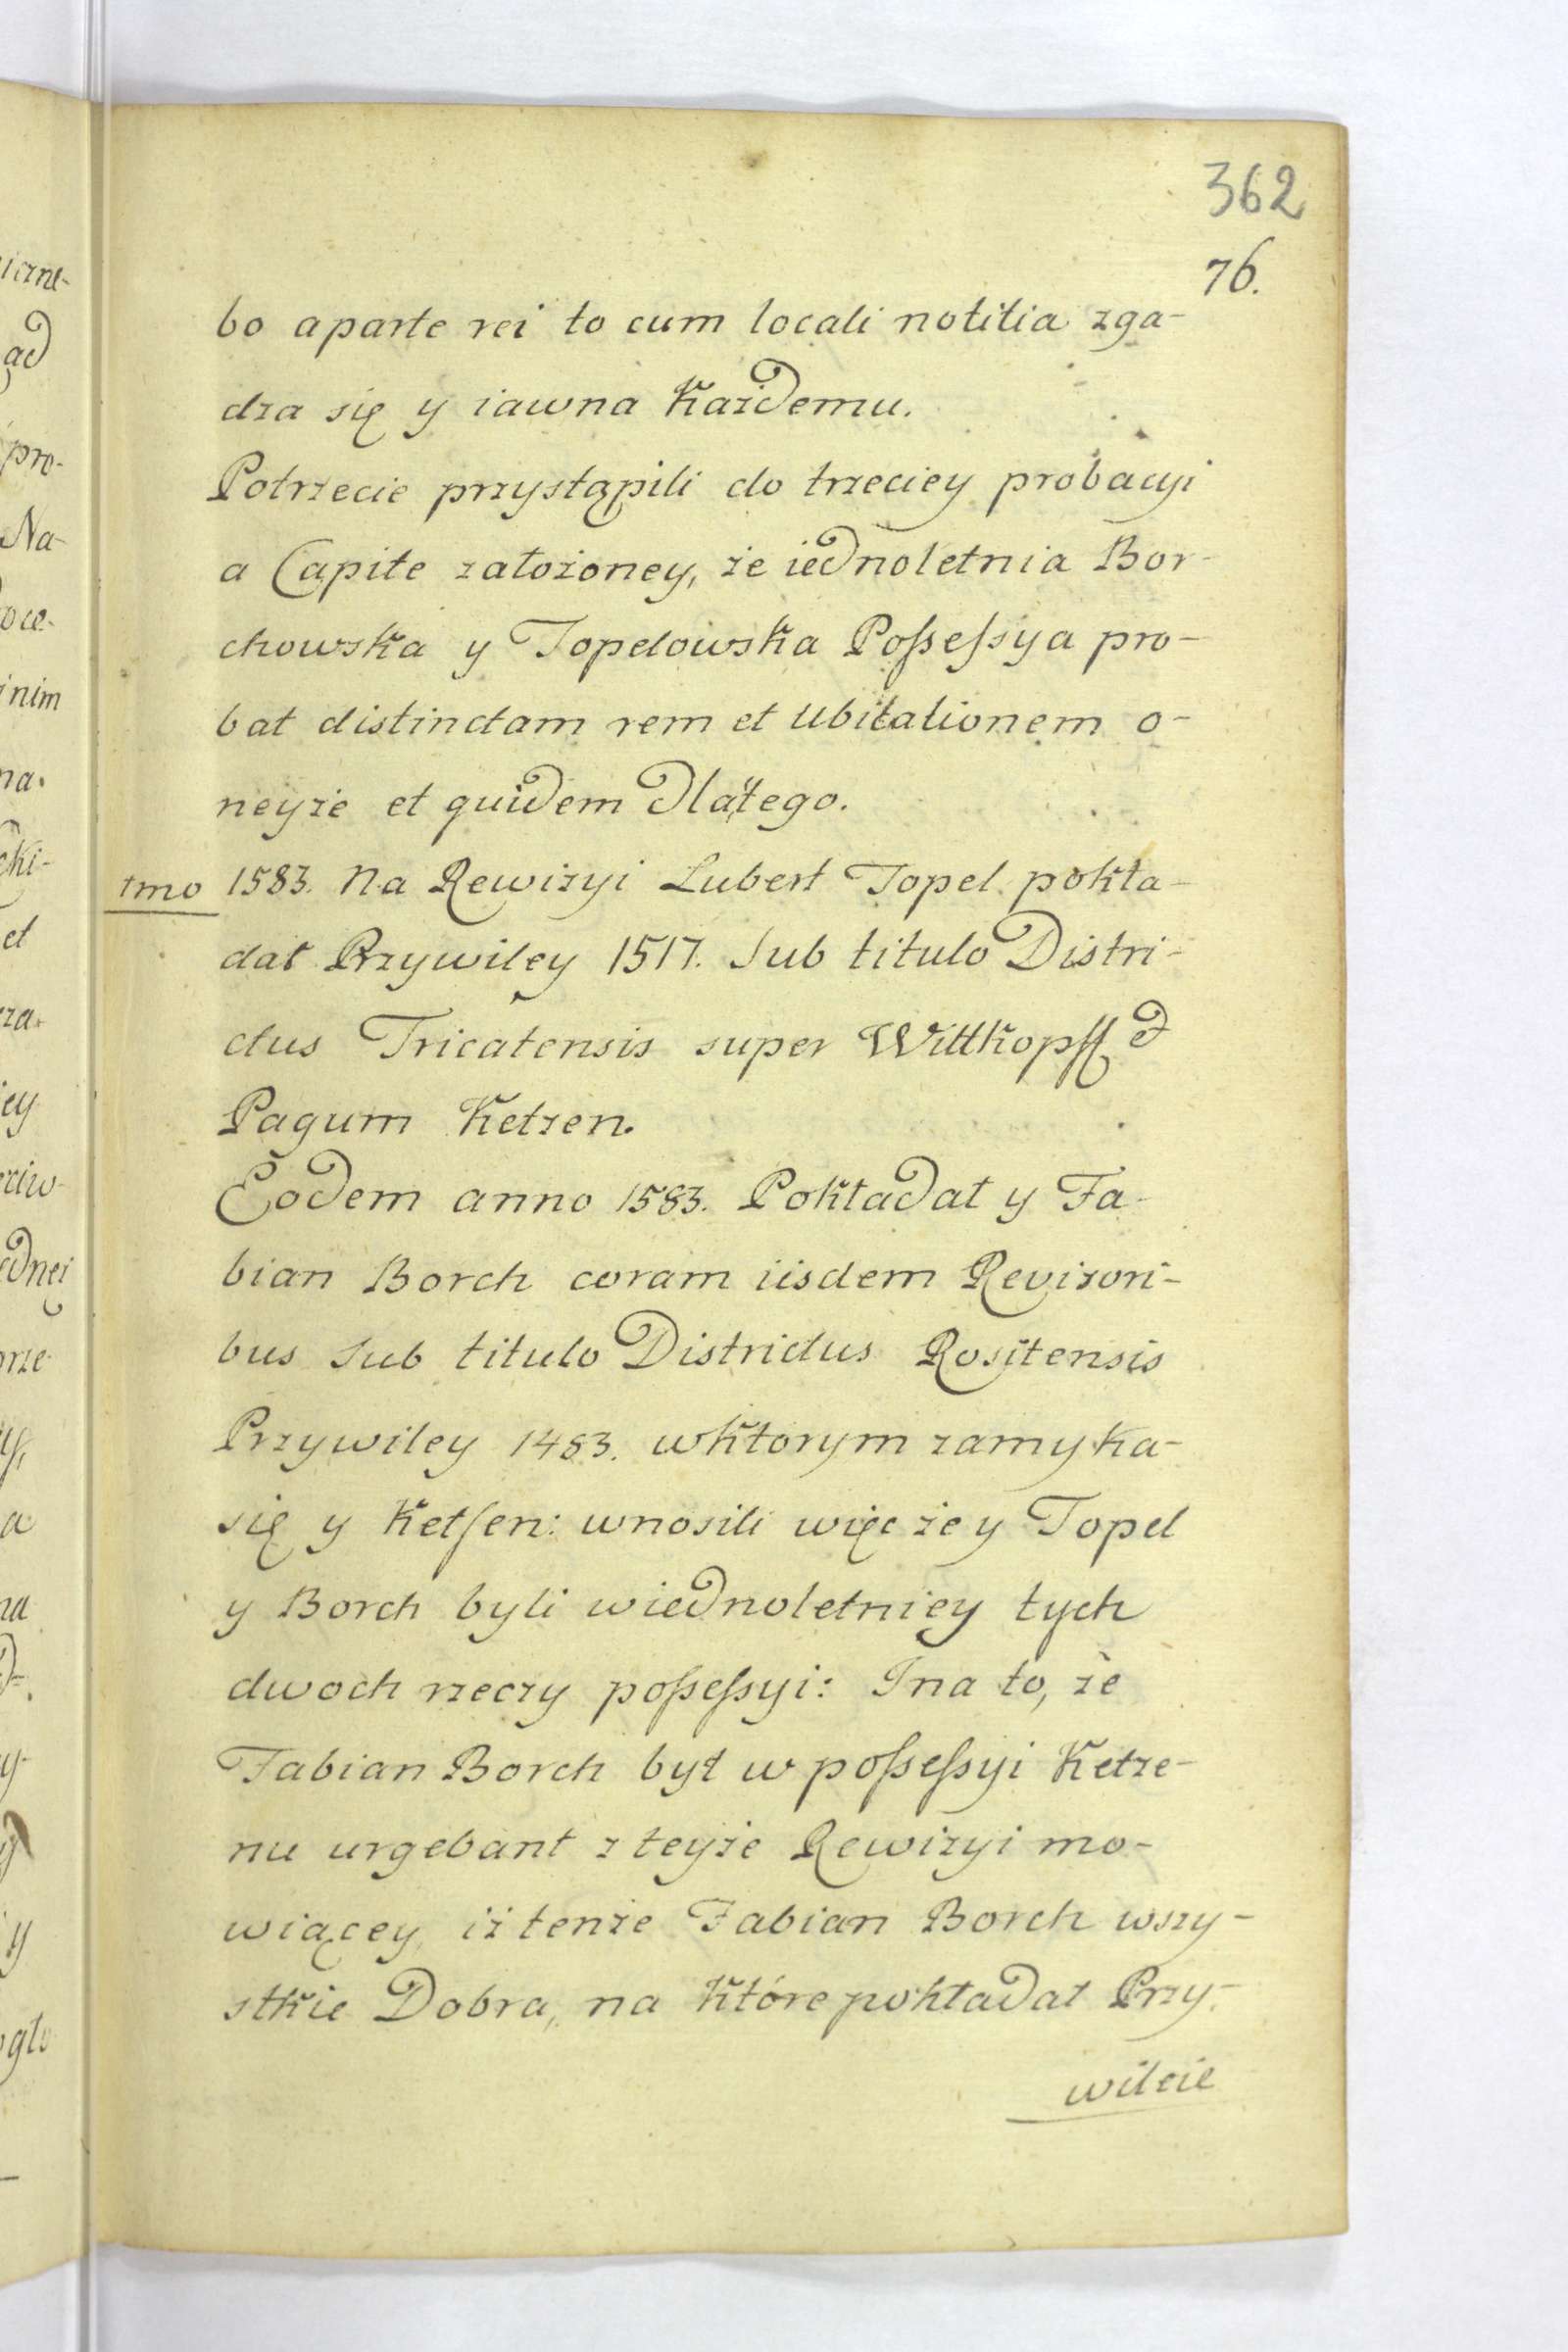 362
76.
bo aparte rei to cum locali notitia zga-
dza się y iawna Każdemu.
Potrzecie przystąpili do trzeciey probacyi
a Capite założoney, że iednoletnia Bor-
chowska y Topelowska Possessya pro-
bat distinctam rem et Ubitationem o-
neyże et quidem Dlatego.
1mo 1583. Na Rewizyi Lubert Topel pokła-
dał Przywiley 1517. Sub titulo Distri-
ctus Tricatensis super Wittkopff et
Pagum Ketzen.
Eodem anno 1583. Pokładał y Fa-
bian Borch coram iisdem Revizori-
bus Sub titulo Districtus Rositensis
Przywiley 1483. wktorym zamyka-
się y Ketsen: wnosili więc że y Topel
y Borch byli wiednoletniey tych
dwoch rzeczy possessyi: Ina to, że
Fabian Borch był w possessyi Ketze-
nu urgebant z teyże Rewizyi mo-
wiącey, iż tenże Fabian Borch wszy-
stkie Dobra, na które pokładał Przy-
wileie